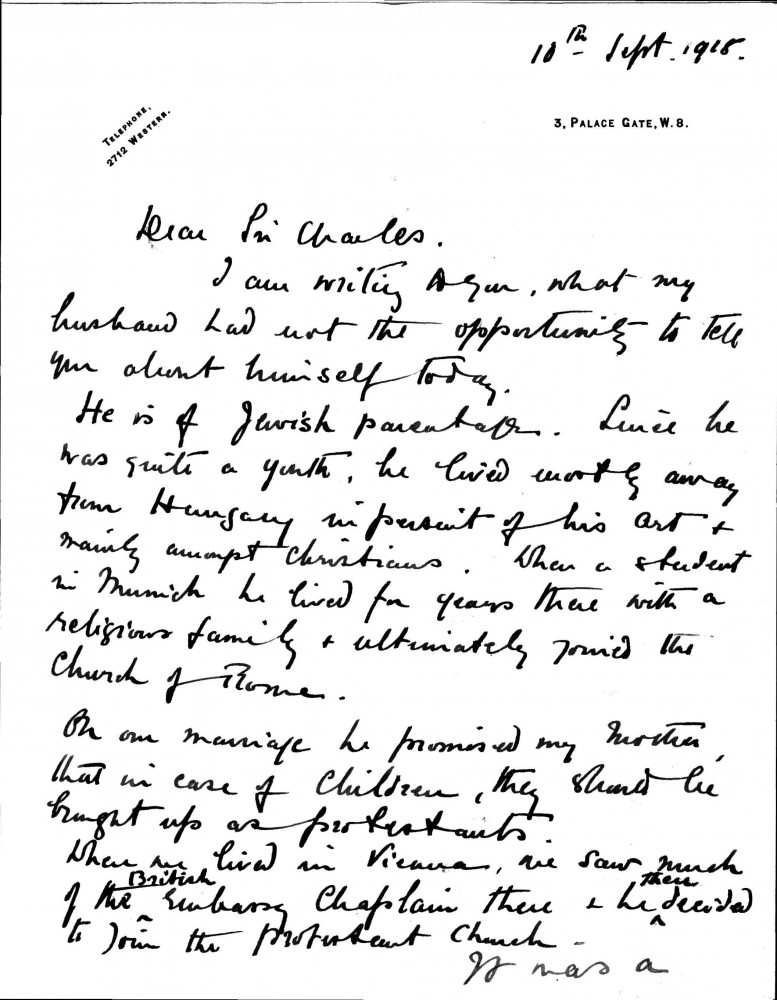 10th Sept. 1918.
TELEPHONE,
2712 WESTERN.
3, PALACE GATE, W. 8.
Dear Sir Charles.
I am writing to you, what my
husband had not the opportunity to tell
you about himself today.
He is of Jewish parentage. Since he
was quite a youth, he lived mostly away
from Hungary in persuit of his art &
mainly amongst Christians. When a student
in Munich he lived for years there with a
religious family & ultimately joined the
Church of Rome.
On our marriage he promised my Mother,
that in case of Children, they should be
brought up as protestants.
When we lived in Vienna, we saw much
of the British Embassy Chaplain there & he then decided
to join the protestant Church -
It was a